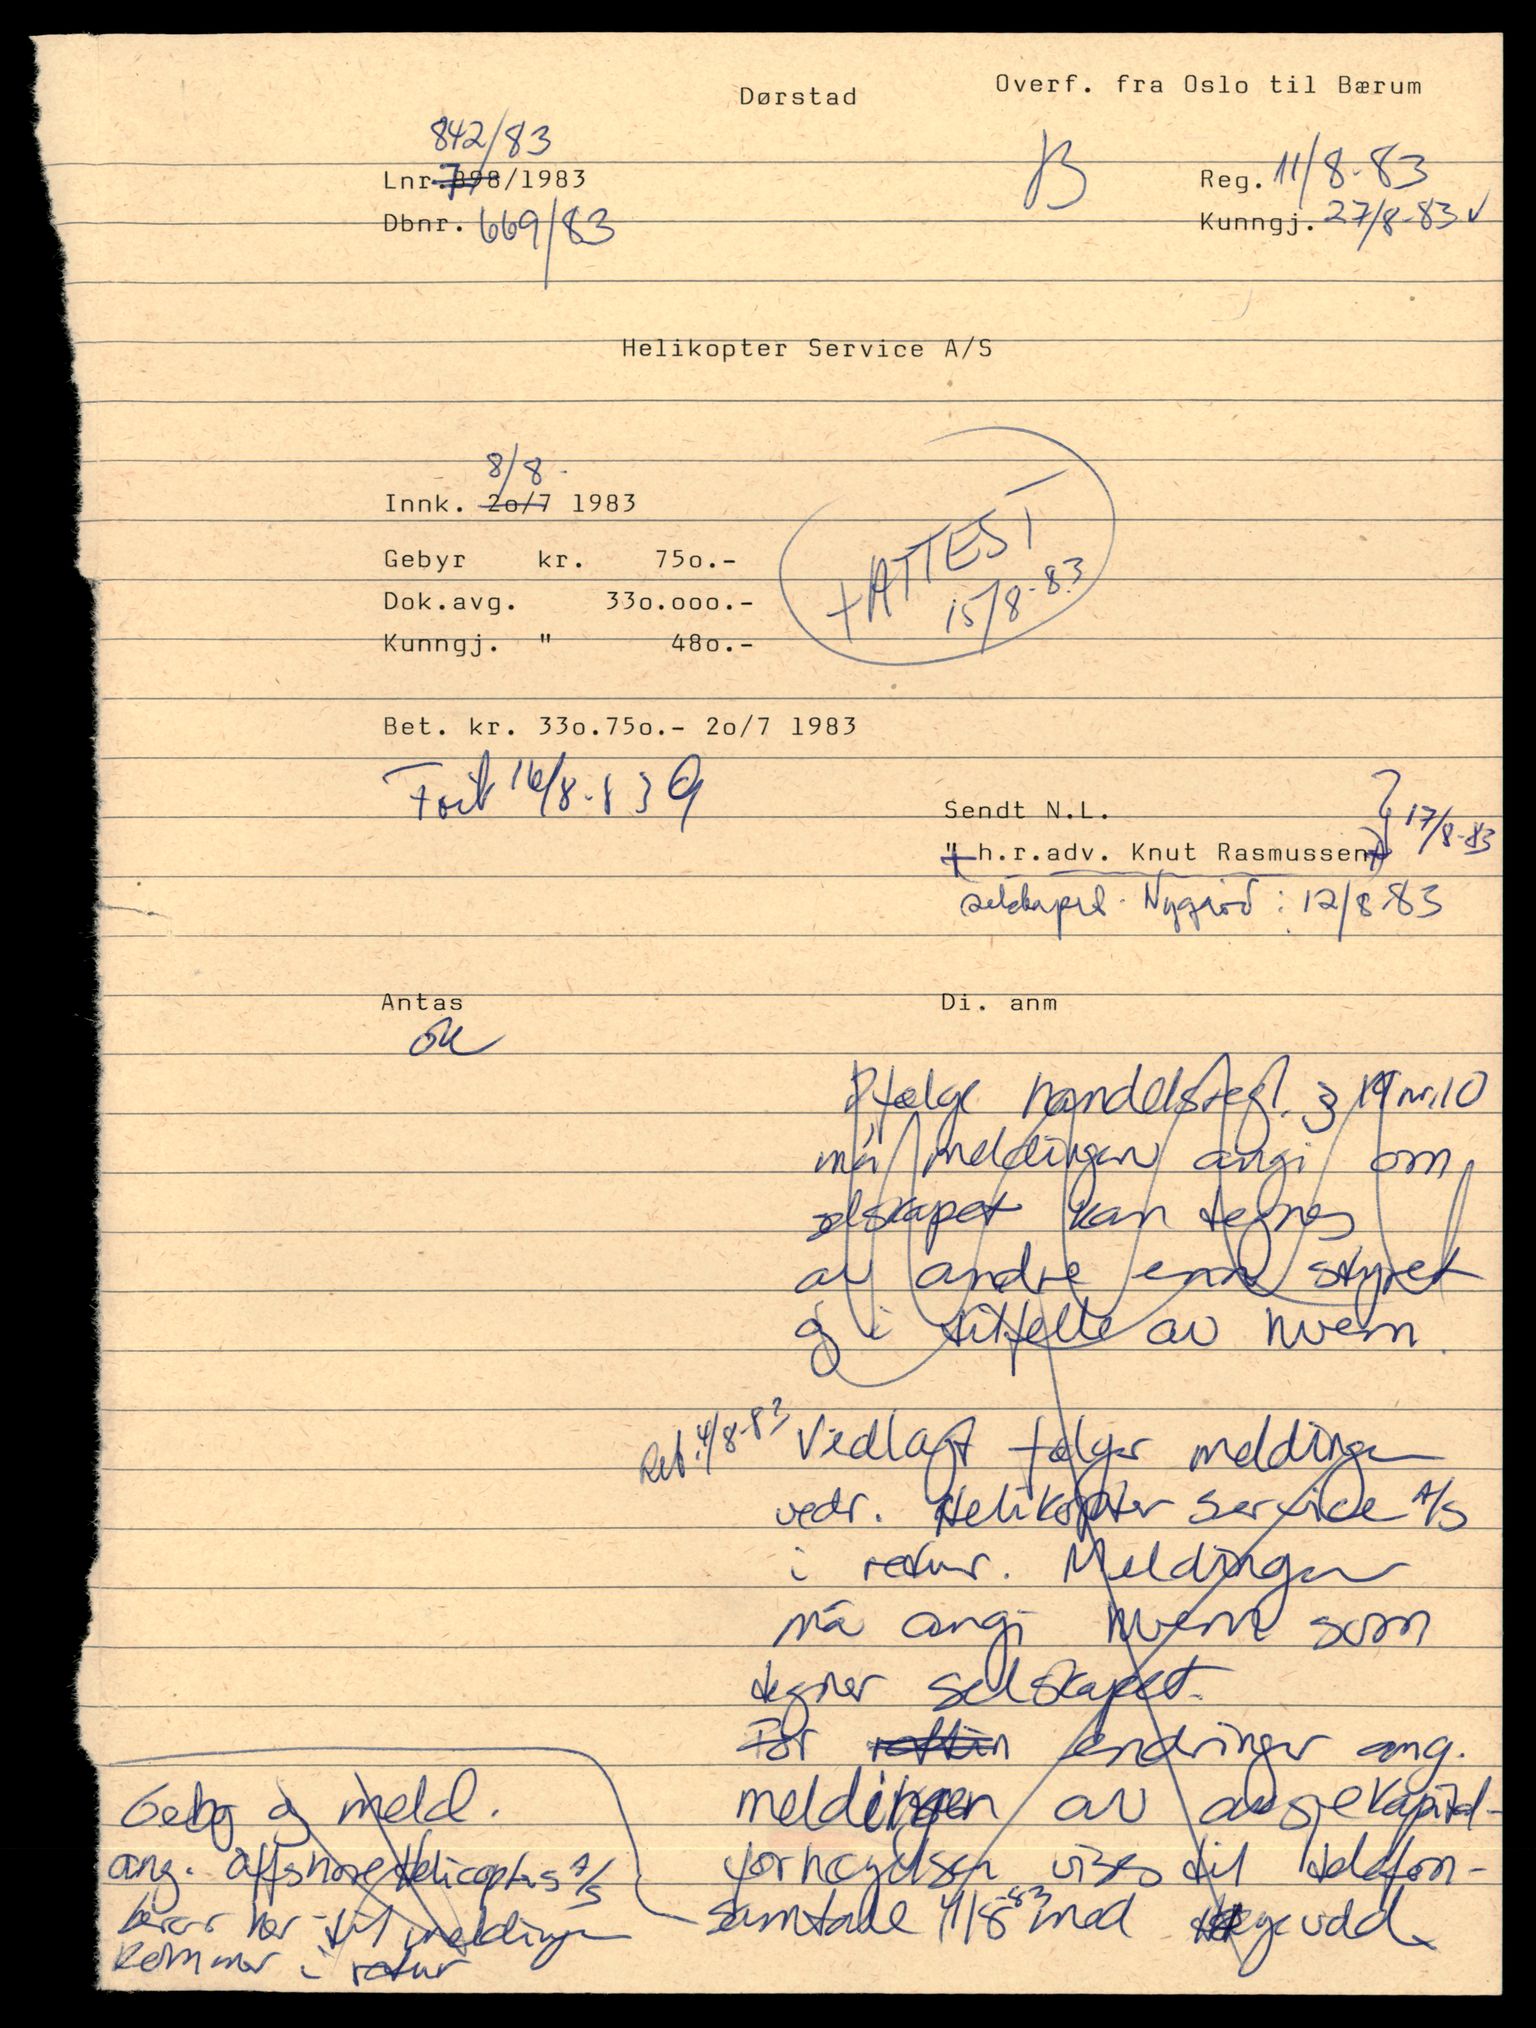 Dørstad
Overf. fra Oslo til Bærum
842/83
Lnr. 898/1983
Reg. 11/8-83
Dbnr. 669/83
Kunngj. 27/8-83 ✓
Helikopter Service A/S
8/8-
Innk. 20/7 1983
+ ATTEST
15/8-83
Gebyr kr. 750.-
Dok.avg. 330.000.-
Kunngj. " 480.-
Bet. kr. 330.750.- 20/7 1983
16/8-83
Sendt N.L.
" h.r.adv. Knut Rasmussen
17/8-83
selskapet Nygård: 12/8-83
Antas
Di. anm
ok
Ifølge handelsregl. § 19 nr. 10
må meldingen angi om
selskapet kan tegnes
av andre enn styret
og i tilfelle av hvem.
Ret. 4/8-83
Vedlagt følger meldingen
vedr. Helikopter Service A/S
i retur. Meldingen
må angi hvem som
tegner selskapet.
For endringer ang.
meldingen av aksjekapital-
forhøyelsen vises til telefon-
samtale 4/8-83 med
Gebyr og meld.
ang. Offshore Helicopters A/S
beror her til meldingen
kommer i retur